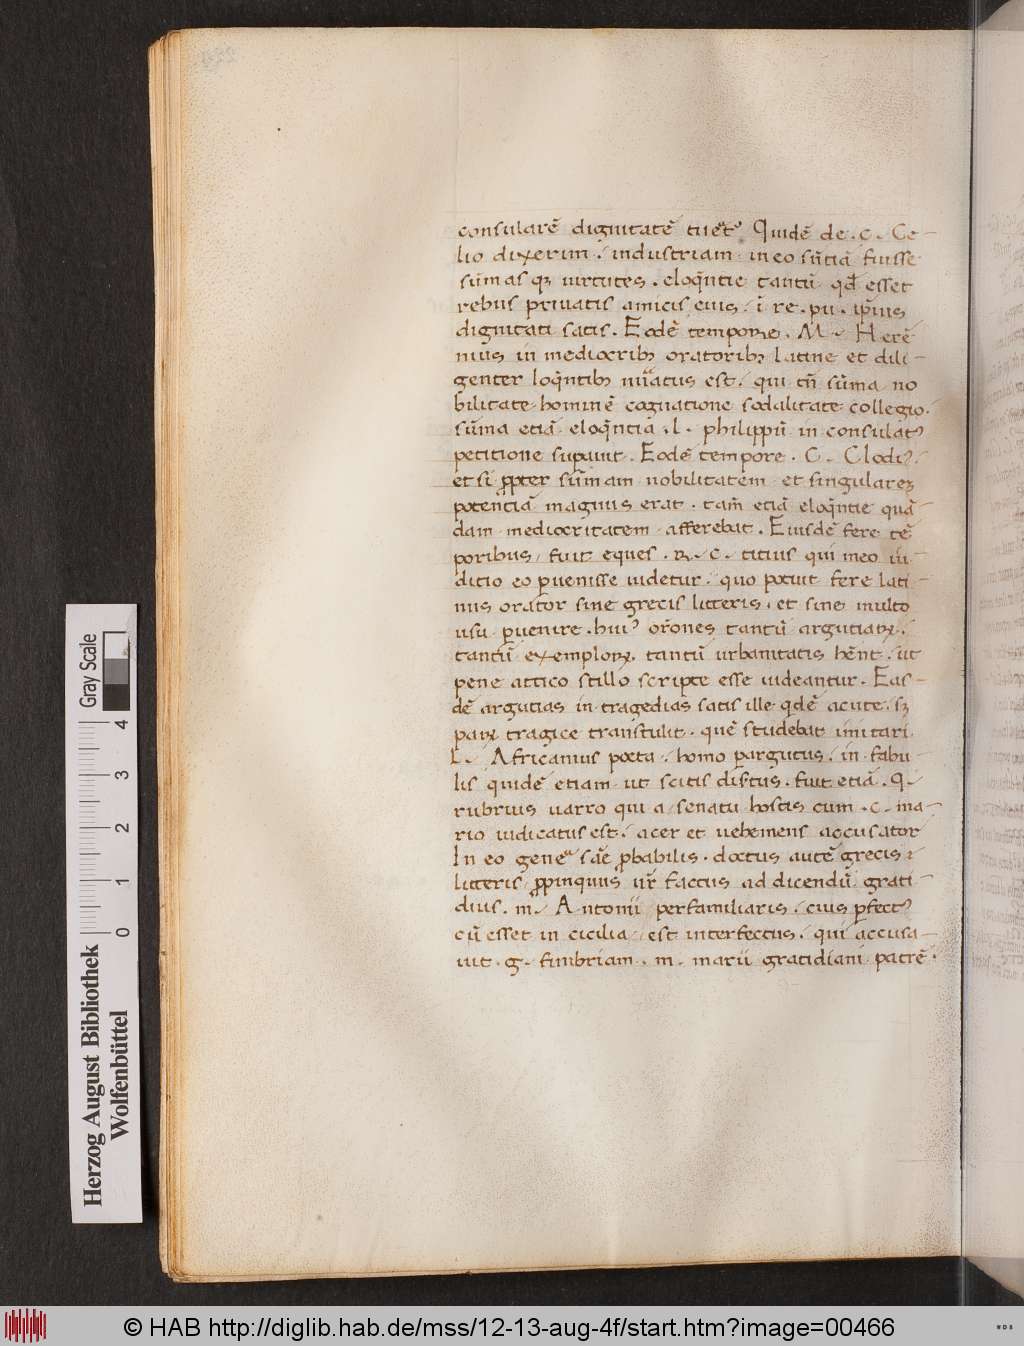 consularē dignitatē tueꝯ Quidē de . c . Ce-
lio dixerim . industriam in eo sūm̄ā fuisse
sūmas q3 uirtutes . eloq̄ntie tantū qđ esset
rebus priuatis amicis eius . ī re . pu . ip̄ius
dignitati satis . Eodē tempore . M . Herē
nius in mediocrib3 oratorib3 latine et dili-
genter loq̄ntib3 nūatus est . qui tn̄ sūma no
bilitate hominē cognatione sodalitate collegio .
sūma etiā eloq̄ntiā . L . philippū in consulatꝯ
petitione supauit . Eodē tempore . C . Clodiꝯ .
et si ꝓpter sūmam nobilitatem et singularez
potentiā magnus erat . tam̄ etiā eloq̄ntie quā-
dam mediocritatem afferebat . Eiusdē fere tē
poribus fuit eques . R . C . titius qui meo iu-
ditio eo ꝑuenisse uidetur . quo potuit fere lati-
nus orator sine grecis litteris . et sine multo
usu ꝑuenire . huiꝯ or̄ones tantū argutiaꝝ .
tantū exemploꝝ tantū urbanitatis hēnt . ut
pene attico stillo scripte esse uideantur . Eas-
dē argutias in tragedias satis ille qdē acute . sꝫ
paꝝ tragice transtulit . quē studebat imitari
L . Africanius poeta . homo ꝑargutus . in fabu-
lis quidē etiam ut scitis disꝯtus . fuit etiā . Q .
rubrius uarro qui a senatu hostis cum . c . ma-
rio iudicatus est . acer et uehemens accusator
In eo genere sāe ꝓbabilis . doctus autē grecis
litteris ꝓpinquus nr̄ factus ad dicendū grati-
dius . m . Antonii perfamiliaris . cuis ꝑfectꝯ
cū esset in cicilia est interfectus . qui accusa-
uit . g . fimbriam . m . marii gratidiani patrē .
Gray Scale
0 1 2 3 4
Herzog August Bibliothek
Wolfenbüttel
© HAB http://diglib.hab.de/mss/12-13-aug-4f/start.htm?image=00466